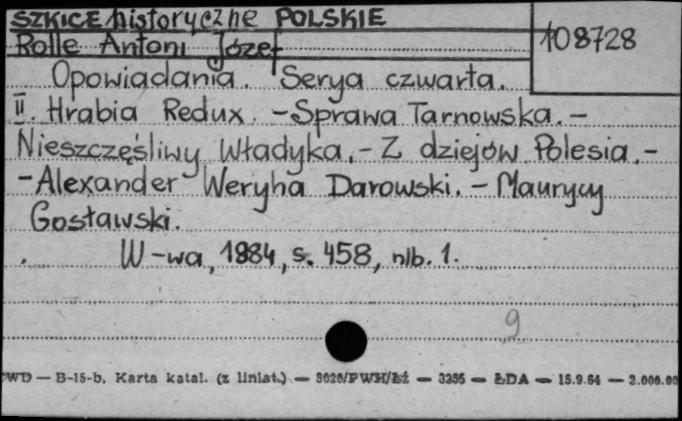 SZKICE historyczne POLSKIE
108728
Rolle Antoni Józef
Opowiadania. Serya czwarta.
II. Hrabia Redux. - Sprawa Tarnowska. -
Nieszczęśliwy Władyka. - Z dziejów Polesia. -
- Alexander Weryha Darowski. - Maurycy
Gosławski.
W-wa, 1884, s. 458, nlb. 1.
9
CWD — B-15-b. Karta katal. (z liniat.) — 3020/PWH/Łź — 3255 — ŁDA — 15.9.64 — 2.000.00